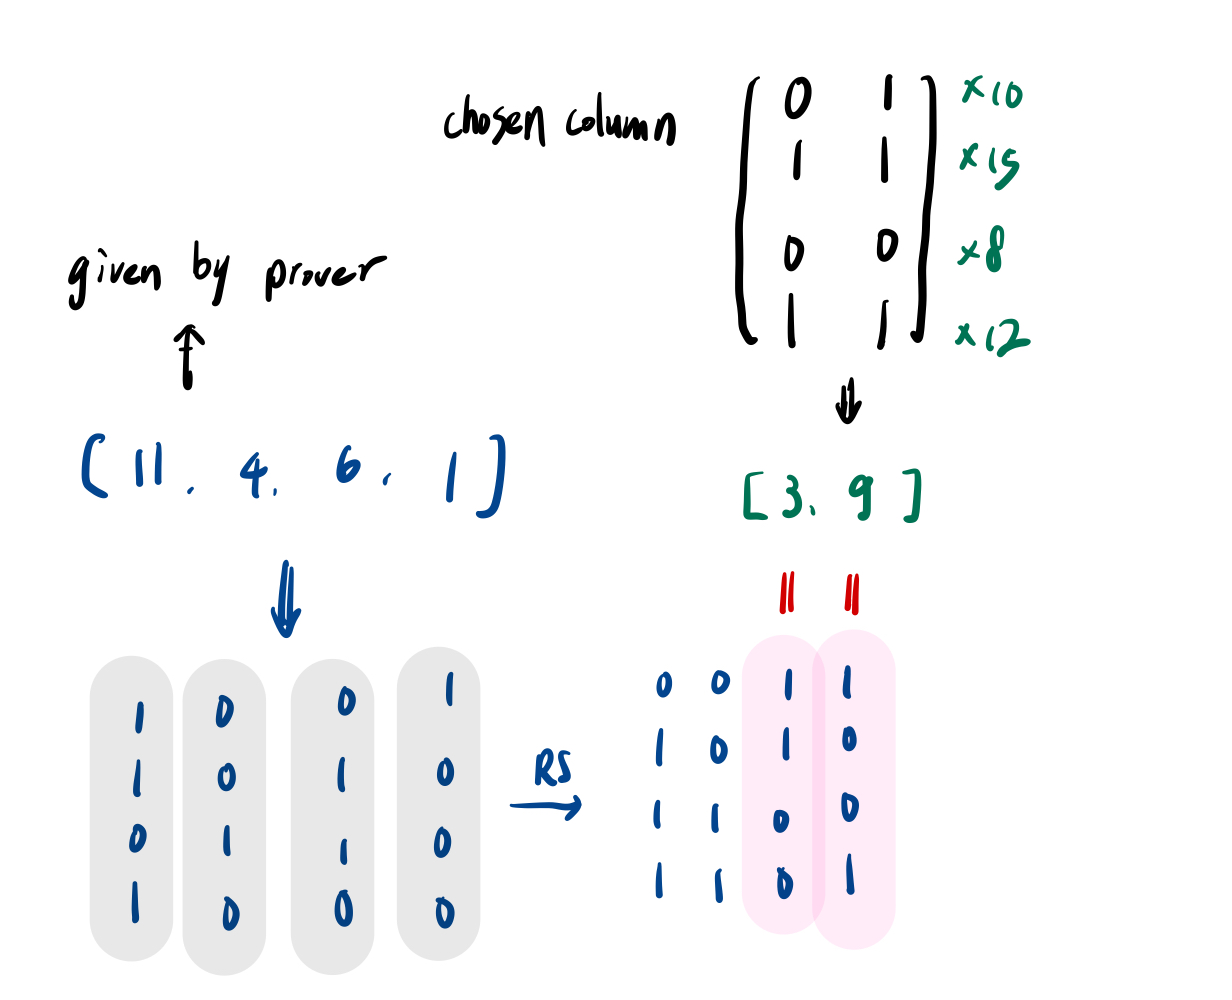 chosen column
0 1 ×10
1 1 ×15
0 0 ×8
1 1 ×12
given by prover
[ 11, 4, 6, 1 ]
[ 3, 9 ]
1 0 0 1
1 0 1 0
0 1 1 0
1 0 0 0
RS
0 0 1 1
1 0 1 0
1 1 0 0
1 1 0 1